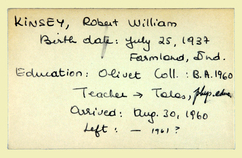 KINSEY, Robert William
Birth date: July 25, 1937
Farmland, Ind.
Education: Olivet Coll.: B.A. 1960
Teacher → Talas,
Arrived: Aug. 30, 1960
Left: — 1961?